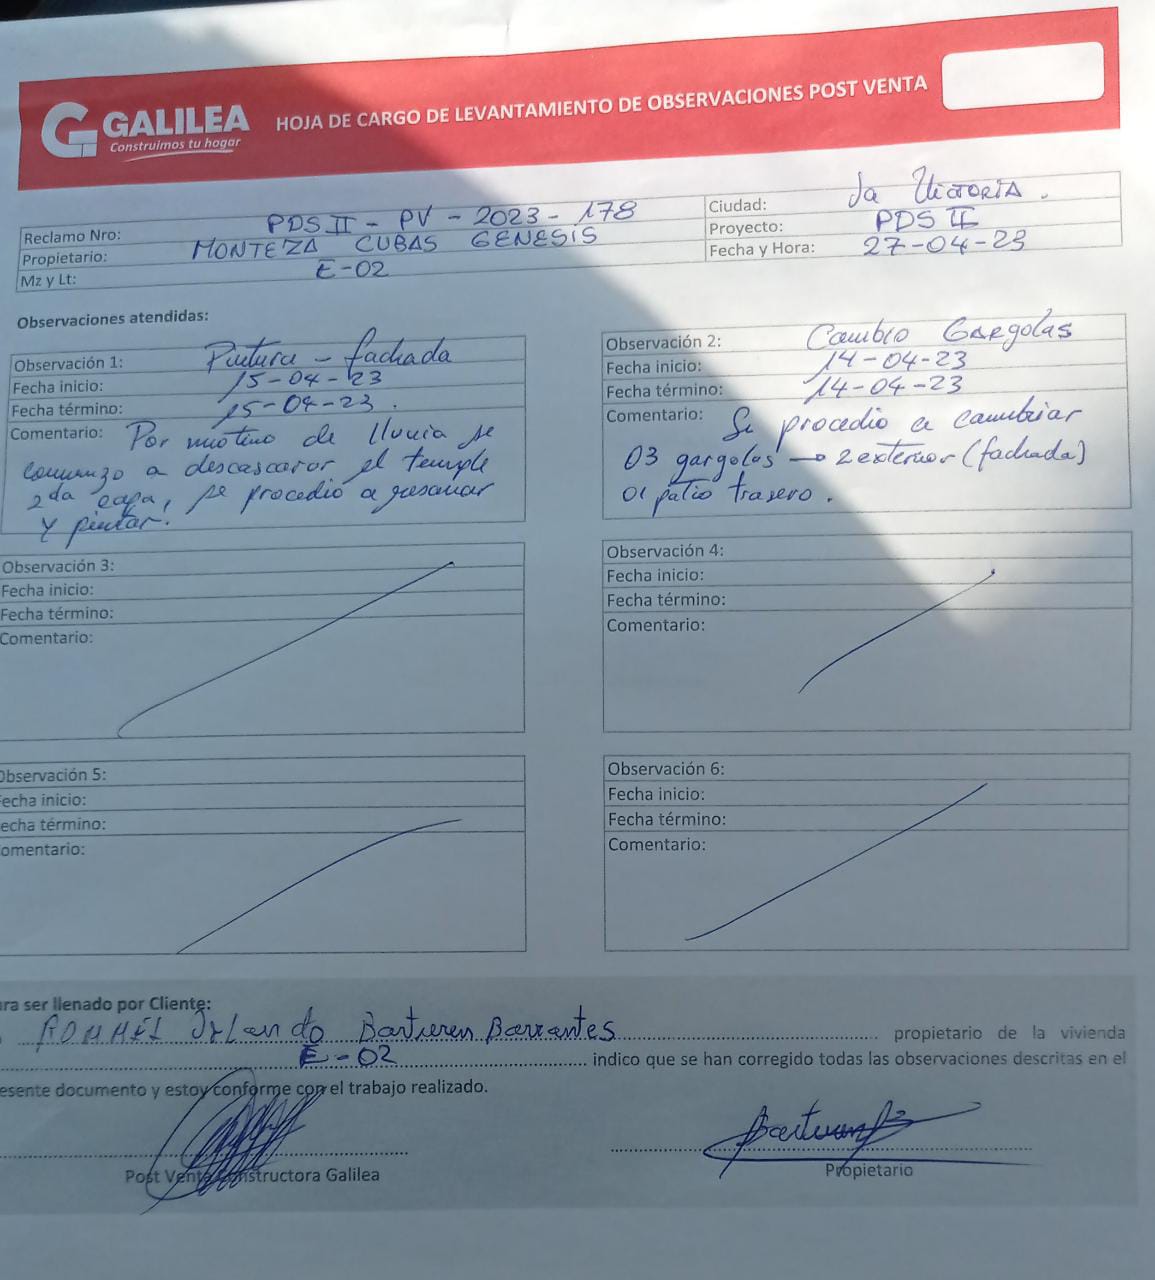 GALILEA
Construimos tu hogar
HOJA DE CARGO DE LEVANTAMIENTO DE OBSERVACIONES POST VENTA
Reclamo Nro: PDS II - PV - 2023 - 178
Propietario: MONTEZA CUBAS GENESIS
Mz y Lt: E-02
Ciudad: La Victoria.
Proyecto: PDS II
Fecha y Hora: 27-04-23
Observaciones atendidas:
Observación 1: Pintura - fachada
Fecha inicio: 15-04-23
Fecha término: 15-04-23.
Comentario: Por motivo de lluvia se
comenzo a descascarar el temple
2da capa, se procedio a resanar
y pintar.
Observación 2: Cambio Gargolas
Fecha inicio: 14-04-23
Fecha término: 14-04-23
Comentario: Se procedio a cambiar
03 gargolas → 2 exterior (fachada)
01 patio trasero.
Observación 3:
Fecha inicio:
Fecha término:
Comentario:
Observación 4:
Fecha inicio:
Fecha término:
Comentario:
Observación 5:
echa inicio:
echa término:
omentario:
Observación 6:
Fecha inicio:
Fecha término:
Comentario:
ara ser llenado por Cliente:
ROMMEL Orlando Barrantes propietario de la vivienda
E-02 indico que se han corregido todas las observaciones descritas en el
esente documento y estoy conforme con el trabajo realizado.
Post Venta Constructora Galilea
Propietario